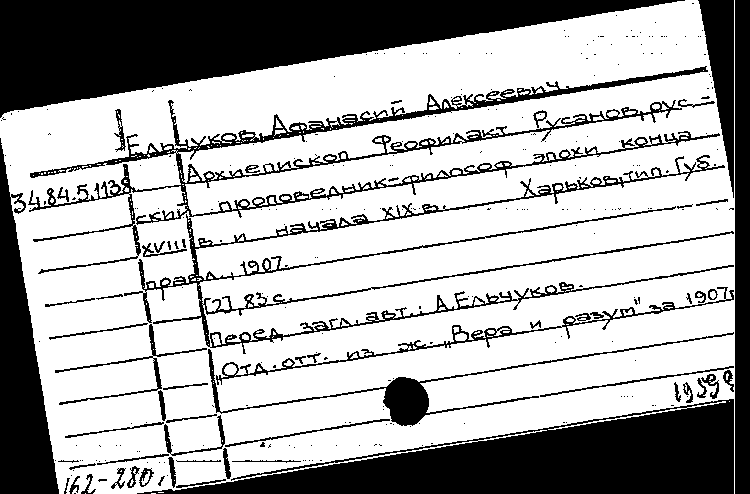 Ельчуков, Афанасий Алексеевич.
34.84.5.1138 Архиепископ Феофилакт Русанов, рус-
ский проповедник-философ эпохи конца
XVIII в. и начала XIX в. Харьков, тип. Губ.
правл., 1907.
[2], 83 с.
Перед загл. авт.: А. Ельчуков.
"Отд. отт. из ж. "Вера и разум" за 1907
162-280.